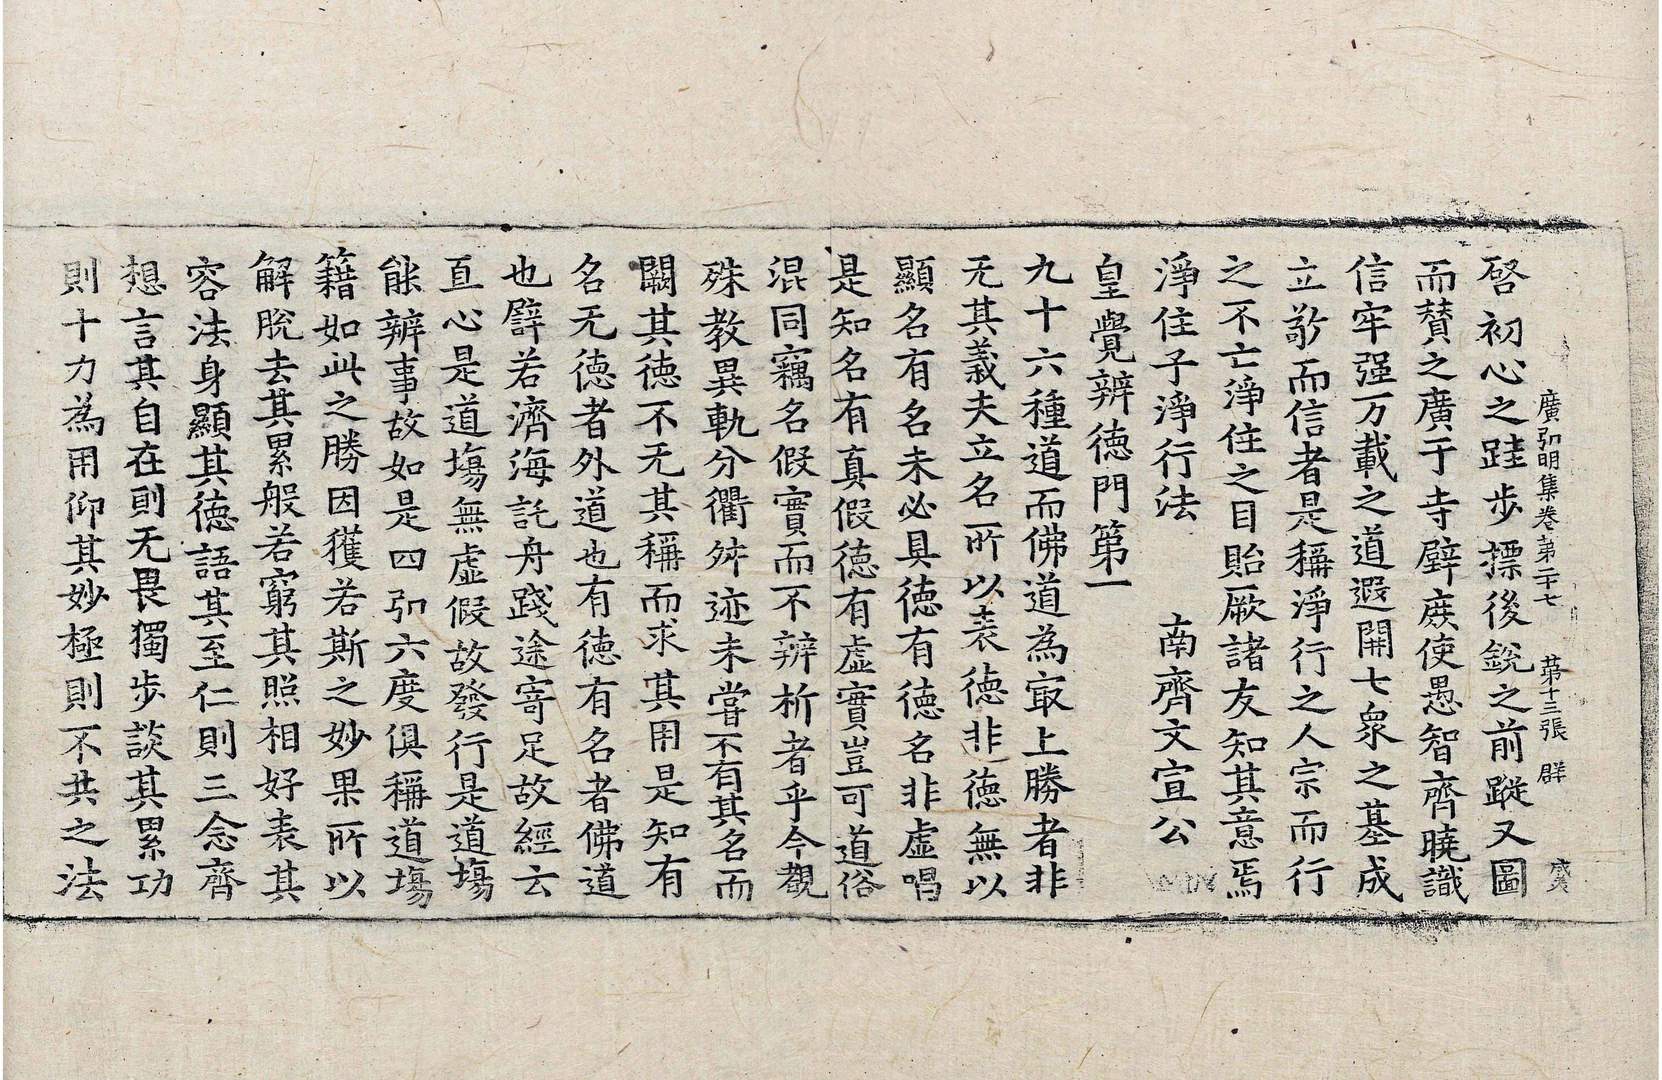 廣弘明集卷第二十七　第十三張　群
啓初心之跬步摽後銳之前蹤又圖
而賛之廣于寺壁庶使愚智齊曉識
信牢强万載之道遐開七衆之基成
立敬而信者是稱淨行之人宗而行
之不亡淨住之目貽厥諸友知其意焉
淨住子淨行法　　南齊文宣公
皇覺辨德門第一
九十六種道而佛道為冣上勝者非
无其義夫立名所以表德非德無以
顯名有名未必具德有德名非虛唱
是知名有真假德有虛實豈可道俗
混同竊名假實而不辨析者乎今觀
殊教異軌分衢舛迹未嘗不有其名而
闕其德不无其稱而求其用是知有
名无德者外道也有德有名者佛道
也譬若濟海託舟踐途寄足故經云
直心是道塲無虛假故發行是道塲
能辨事故如是四弘六度俱稱道塲
籍如此之勝因獲若斯之妙果所以
解脫去其累般若窮其照相好表其
容法身顯其德語其至仁則三念齊
想言其自在則无畏獨步談其累功
則十力為用仰其妙極則不共之法